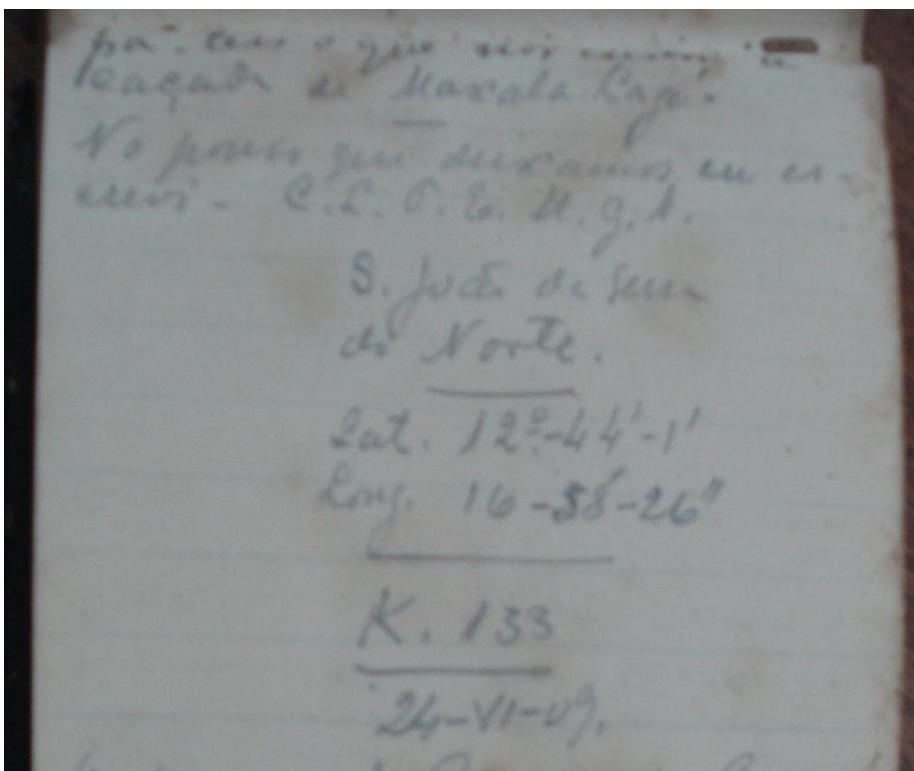 que
caçada de Maxala Caze.
No pouso que deixamos eu es-
crevi - C. L. T. E. M. G. A.
S. João da Serra
do Norte.
Lat. 12º-44'-1'
Long. 16-58-26"
K. 133
24-VI-09.